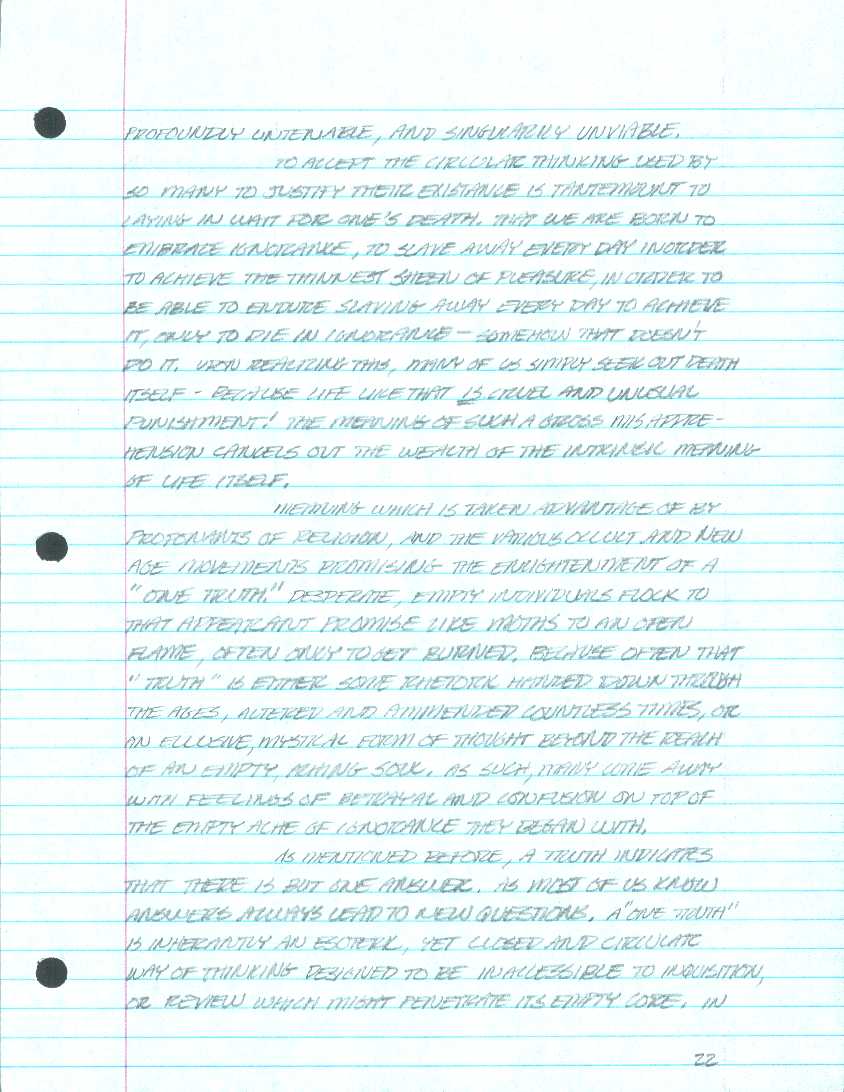 PROFOUNDLY UNTENABLE, AND SINGULARILY UNVIABLE.
TO ACCEPT THE CIRCULAR THINKING USED BY
SO MANY TO JUSTIFY THEIR EXISTANCE IS TANTEMOUNT TO
LAYING IN WAIT FOR ONE'S DEATH. THAT WE ARE BORN TO
EMBRACE IGNORANCE, TO SLAVE AWAY EVERY DAY IN ORDER
TO ACHIEVE THE THINNEST SHEEN OF PLEASURE, IN ORDER TO
BE ABLE TO ENDURE SLAVING AWAY EVERY DAY TO ACHIEVE
IT, ONLY TO DIE IN IGNORANCE – SOMEHOW THAT DOESN'T
DO IT. UPON REALIZING THIS, MANY OF US SIMPLY SEEK OUT DEATH
ITSELF - BECAUSE LIFE LIKE THAT IS CRUEL AND UNUSUAL
PUNISHMENT! THE MEANING OF SUCH A GROSS MISAPPRE-
HENSION CANCELS OUT THE WEALTH OF THE INTRINSIC MEANING
OF LIFE ITSELF.
MEANING WHICH IS TAKEN ADVANTAGE OF BY
PROPONANTS OF RELIGION, AND THE VARIOUS OCCULT AND NEW
AGE MOVEMENTS PROMISING THE ENLIGHTENMENT OF A
"ONE TRUTH." DESPERATE, EMPTY INDIVIDUALS FLOCK TO
THAT APPEARANT PROMISE LIKE MOTHS TO AN OPEN
FLAME, OFTEN ONLY TO GET BURNED. BECAUSE OFTEN THAT
"TRUTH" IS EITHER SOME RHETORIC HANDED DOWN THROUGH
THE AGES, ALTERED AND AMMENDED COUNTLESS TIMES, OR
AN ELLUSIVE, MYSTICAL FORM OF THOUGHT BEYOND THE REACH
OF AN EMPTY, ACHING SOUL. AS SUCH, MANY COME AWAY
WITH FEELINGS OF BETRAYAL AND CONFUSION ON TOP OF
THE EMPTY ACHE OF IGNORANCE THEY BEGAN WITH.
AS MENTIONED BEFORE, A TRUTH INDICATES
THAT THERE IS BUT ONE ANSWER. AS MOST OF US KNOW
ANSWERS ALWAYS LEAD TO NEW QUESTIONS. A "ONE TRUTH"
IS INHERANTLY AN ESOTERIC, YET CLOSED AND CIRCULAR
WAY OF THINKING DESIGNED TO BE INACCESSIBLE TO INQUISITION,
OR REVIEW WHICH MIGHT PENETRATE ITS EMPTY CORE. IN
22